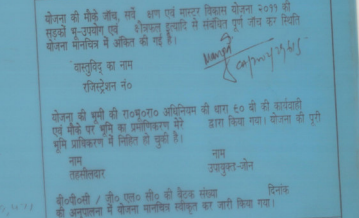 योजना की मौके जाँच, सर्वे क्षण एवं मास्टर विकास योजना २०११ की
सड़कों भू-उपयोग एवं क्षेत्रफल इत्यादि से संबंधित पूर्ण जाँच कर स्थिति
योजना मानचित्र में अंकित की गई है।
वास्तुविद् का नाम
रजिस्ट्रेशन नं०
योजना की भूमी की रा०भू०रा० अधिनियम की धारा ९० बी की कार्यवाही
एवं मौके पर भूमि का प्रमाणिकरण मेरे द्वारा किया गया। योजना की पूरी
भूमि प्राधिकरण में निहित हो चुकी है।
नाम नाम
तहसीलदार उपायुक्त-जोन
बी०पी०सी / जी० एल० सी० की बैठक संख्या दिनांक
की अनुपालना में योजना मानचित्र स्वीकृत कर जारी किया गया।